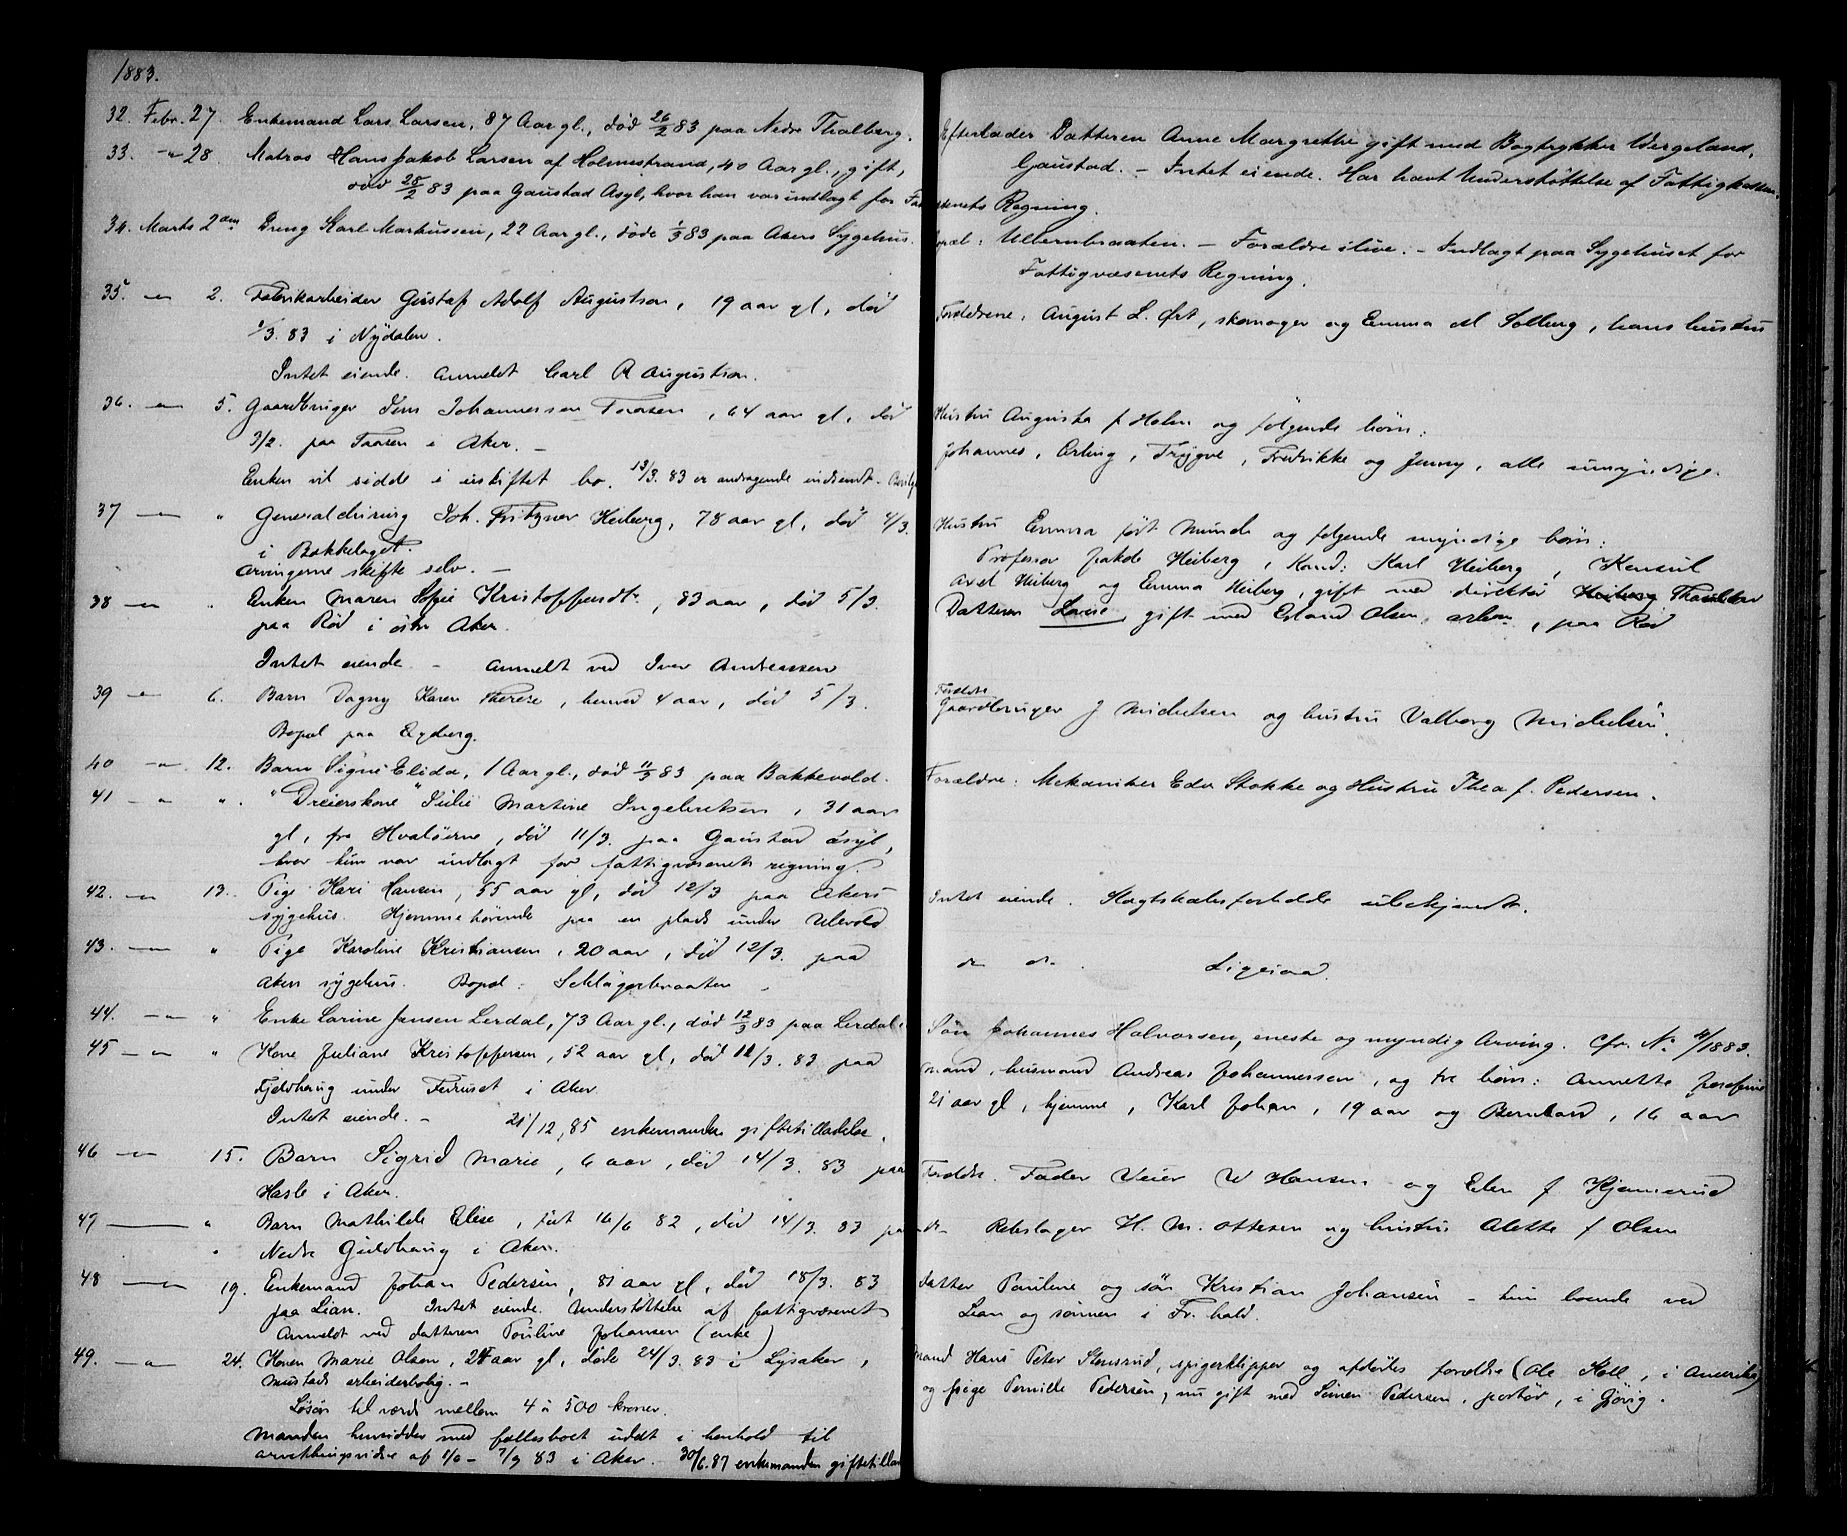 1883.
32. Febr. 27. Enkemand Lars Larsen, 87 Aar gl., død 26/2 83 paa Nedre Thalberg.
33. -"- 28. Matros Hans Jakob Larsen af Holmestrand, 40 Aar gl., gift,
død 28/2 83 paa Gaustad Asyl, hvor han var indlagt for Fat
34. Marts 2den Dreng Karl Markussen, 22 Aar gl., døde 1/3 83 paa Akers Sygehus.
35. -"- 2. Fabrikarbeider Gustaf Adolf Augustson, 19 aar gl, død
1/3. 83 i Nydalen.
Intet eiende. Anmeldt Carl A Augustson.
36. -"- 5. Gaardbruger Jens Johannesen Taasen, 64 aar gl, død
3/2. paa Taasen i Aker. -
Enken vil sidde i uskiftet bo. 13/3. 83 er andragende indsendt -
37 -"- " Generaldirurg Joh. Fritzner Heiberg, 78 aar gl, død 4/3.
i Bækkelaget.
Arvingerne skifte selv. -
38 -"- " Enken Maren Sofie Kristoffersdtr, 83 aar, død 5/3.
paa Rød i østre Aker.
Intet eiende - anmeldt ved Iver Andreassen
39 -"- 6. Barn Dagny Karen Therese, henved 4 aar, død 5/3.
Bopæl paa Rydberg.
40 -"- 12. Barn Signe Elida, 1 Aar gl., død 11/3 83 paa Bakkevold.
41 -"- ". "Dreierskone" Julie Martine Ingebretsen, 31 aar
gl, fra Hvaløerne, død 11/3. paa Gaustad asyl,
hvor hun var indlagt for fattigvæsenets regning.
42. -"- 13. Pige Kari Hansen, 55 aar gl, død 12/3 paa Akers
sygehus. Hjemmehørende paa en plads under Ulevold
43. -"- " Pige Karoline Kristiansen, 20 aar, død 12/3. paa
Akers sygehus. Bopæl: Schlägerbraaten
44. -"- " Enke Larine Jansen Lerdal, 73 Aar gl., død 12/3 83 paa Lerdal.
45 -"- " Kone Juliane Kristoffersen, 52 aar gl, død 12/3. 83 paa
Fjeldhaug under Furuset i Aker
Intet eiende. - 21/12, 85 enkemanden giftetilladelse.
46 -"- 15. Barn Sigrid Marie, 6 aar, død 14/3. 83 paa
Hasle i Aker.
47 -"- " Barn Mathilde Elise, født 16/6 82, død 14/3. 83 paa
Nedre Guldhaug i Aker.
48 -"- 19. Enkemand Johan Pedersen, 81 aar gl, død 18/3. 83
paa Lian. Intet eiende. Understøttelse af fattigvæsenet
Anmeldt ved datteren Pauline Johansen (enke)
49. -"- 24. Konen Marie Olsen, 24 aar gl, døde 24/3. 83 i Lysaker,
Mustads arbeiderbolig. -
Løsøre til værdi mellem 4 à 500 kroner.
Manden hensidder med fællesboet uddt i henhold til
1/6 - 7/9 83 i Aker. - 30/6. 87 enkemanden giftetillad
Efterlader Datteren Anne Margrethe gift med Bogtrykker Wergeland,
Gaustad. - Intet eiende. Har havt Understøttelse af Fattigkassen.
væsenets Regning.
Bopæl: Ullernbraaten. - Forældre ilive. - Indlagt paa Sygehuset for
Fattigvæsenets Regning.
Forældrene: August L. Ört, skomager og Emma M Solberg, hans hustru
Hustru Augusta f Holm og følgende børn:
Johannes, Erling, Trygve, Fredrikke og Jenny, alle umyndige.
Hustru Emma født Munch og følgende myndige børn:
Professor Jakob Heiberg, Kand: Karl Heiberg, Konsul
Axel Heiberg og Emma Heiberg, gift med direktør Thaulow
Datteren Lovise, gift med Erland Olsen, arbm, paa Rød
Forældre
Gaardbruger J Michelsen og hustru Valborg Michelsen.
Forældre: Mekaniker Eder Stokke og Hustru Thea f. Pedersen.
Intet eiende. Slægtskabsforholde ubekjendt.
do do. Ligesaa.
Søn Johannes Halvorsen, eneste og myndig Arving. Cfr. No 4/1883.
Mand, husmand Andreas Johannessen, og tre børn: Annette Josefine
21 aar gl, hjemme, Karl Johan, 19 aar og Bernhard, 16 aar
Forældre. Fader Veier W Hansen og Elen f Kjennerud
do- Rebslager H. M. Ottesen og hustru Alette f Olsen
Datter Pauline og søn Kristian Johansen - hun boende ved
Lian og sønnen i Fr.hald.
Mand Hans Peter Stensrud, spigerklipper og afdødes forældre (Ole Koll, i Amerika)
og pige Pernille Pedersen, nu gift med Simen Pedersen, portør, i Gjøvig.